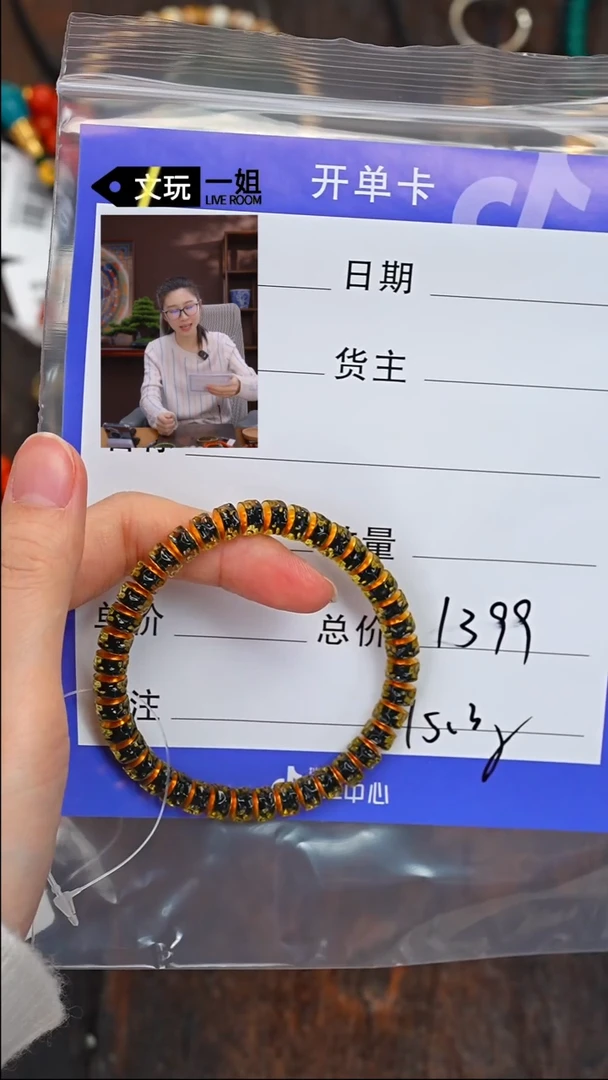 文玩一姐
LIVE ROOM
开单卡
日期
货主
量
单价
总价 1399
注
中心